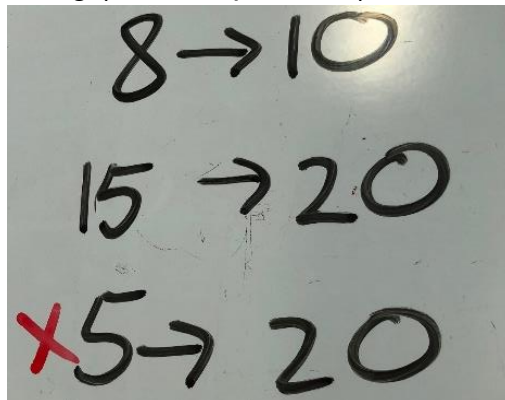 8→10
15→20
×5→20